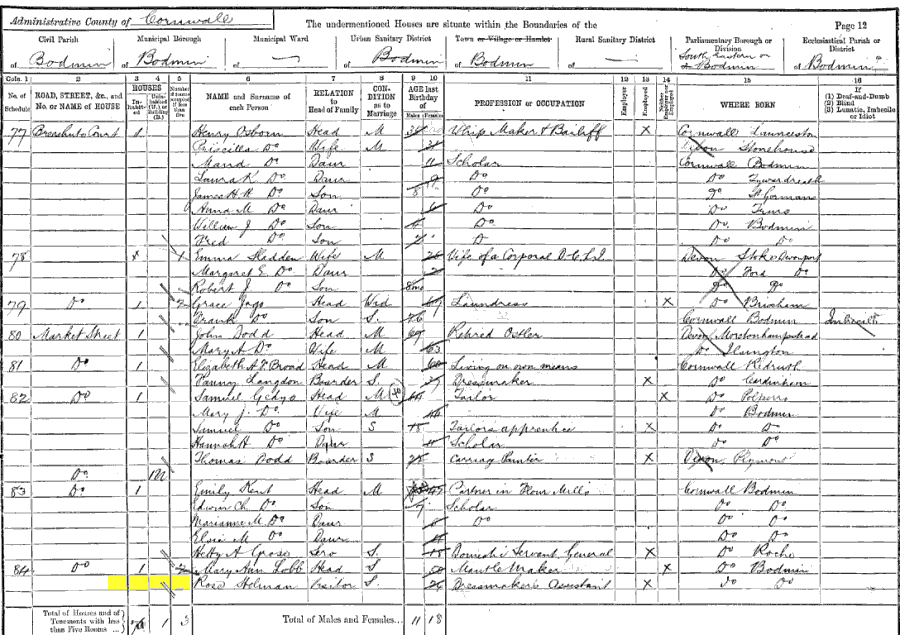 Administrative County of Cornwall
The undermentioned Houses are situate within the Boundaries of the
Page 12
Civil Parish Municipal Borough Municipal Ward Urban Sanitary District Town or Village or Hamlet Rural Sanitary District Parliamentary Borough or Division Ecclesiastical Parish or District
of Bodmin of Bodmin of — of Bodmin of Bodmin of — of South Eastern or Bodmin of Bodmin
Coln. 1 2 3 4 5 6 7 8 9 10 11 12 13 14 15 16
No. of Schedule ROAD, STREET, &c., and No. or NAME of HOUSE HOUSES NAME and Surname of each Person RELATION to Head of Family CONDITION as to Marriage AGE last Birthday of PROFESSION or OCCUPATION Employer Employed Neither WHERE BORN If (1) Deaf-and-Dumb (2) Blind (3) Lunatic, Imbecile or Idiot
Males Females
77 Court 1 Henry Osborn Head M Whip Maker & Bailiff X Cornwall Launceston
Priscilla Do Wife M Devon Stonehouse
Maud Do Daur 11 Scholar Cornwall Bodmin
Laura K Do Daur 9 Do Do Tywardreath
James H H Do Son 8 Do Do St Germans
Anna M Do Daur 6 Do Do Truro
William J Do Son Do Do Bodmin
Fred Do Son Do Do
78 Emma Sladden Wife M Wife of a Corporal D.C.L.I. Devon Stoke Devonport
Margaret E. Do Daur Do Ford Do
Robert J Do Son 8mo Do Do
79 Do 1 2 Grace Jago Head Wid 67 Laundress X Do Brixham
Frank Do Son S. Cornwall Bodmin Imbecile
80 Market Street 1 John Dodd Head M 69 Retired Ostler Devon Moretonhampstead
Mary A Do Wife M 63 Do Ilsington
81 Do 1 Elizabeth A. Broad Head M Living on own means Cornwall Redruth
Fanny Langdon Boarder S. Dressmaker X Do Cardinham
82 Do 1 Samuel Gedye Head M Tailor X Do Polperro
Mary J. Do Wife M Do Bodmin
Samuel Do Son S 18 Tailors apprentice X Do Do
Hannah H Do Daur 11 Scholar Do Do
Thomas Dodd Boarder S Carriage Painter X Devon Plymouth
Do
83 Do 1 Emily Kent Head M Partner in Flour Mills Cornwall Bodmin
Edwin Ch Do Son 7 Scholar Do Do
Marianne M. Do Daur Do Do Do
Elsie M Do Daur Do Do
Hetty A Serv S. 18 Domestic Servant General X Do Roche
84 Do 1 2 Mary Ann Lobb Head S. Mantle Maker X Do Bodmin
Rose Holman Visitor S. 26 Dressmakers Assistant X Do Do
Total of Houses and of Tenements with less than Five Rooms ... 1 3 Total of Males and Females... 11 18